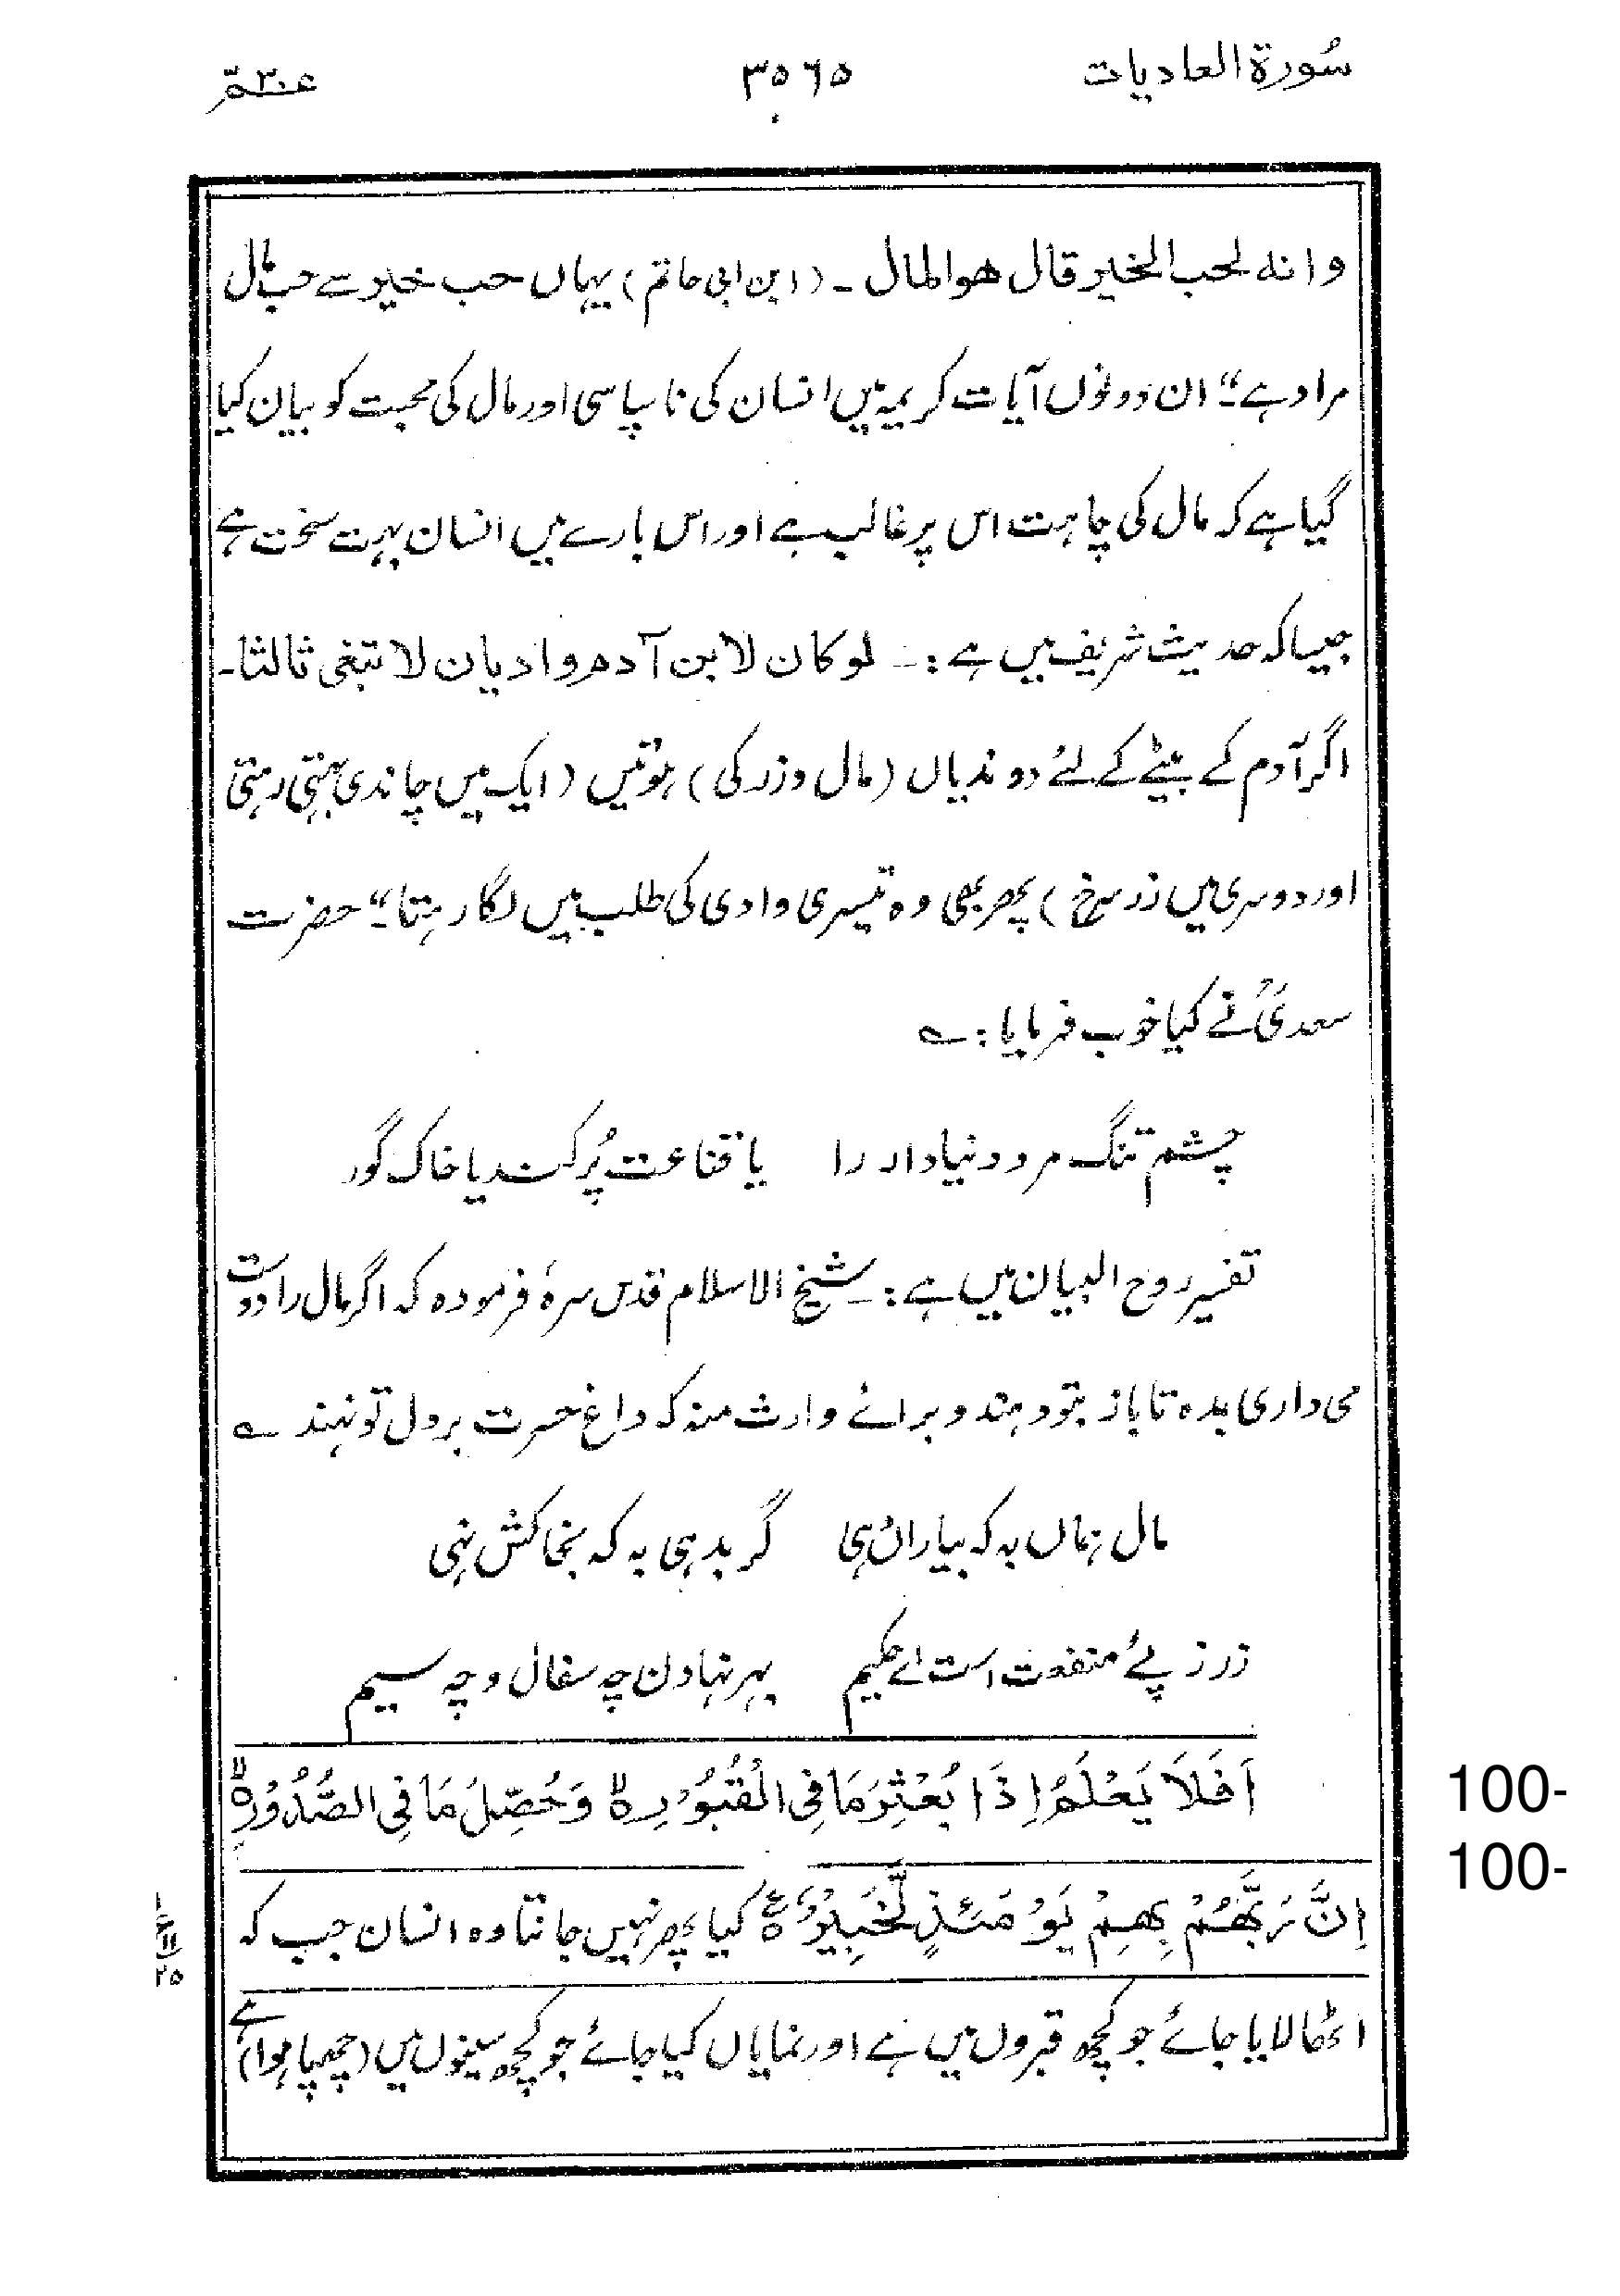 سُورة العاديات ۳۵۶۵ عمّ ۳۰
وانه لحب الخير قال هو المال ـ (ابن ابی حاتم) یہاں حب خیر سے حب مال
مراد ہے“۔ ان دونوں آیات کریمہ میں انسان کی ناسپاسی اور مال کی محبت کو بیان کیا
گیا ہے کہ مال کی چاہت اس پر غالب ہے اور اس بارے میں انسان بہت سخت ہے
جیسا کہ حدیث شریف میں ہے :۔ لوکان لابن آدم وادیان لا تبغی ثالثا۔
اگر آدم کے بیٹے کے لئے دو ندیاں (مال وزر کی) ہوتیں (ایک میں چاندی بہتی رہتی
اور دوسری میں زر سرخ) پھر بھی وہ تیسری وادی کی طلب میں لگا رہتا“۔ حضرت
سعدیؒ نے کیا خوب فرمایا :؎
چشم تنگ مرد دنیا دار را یا قناعت پُر کند یا خاک گور
تفسیر روح البیان میں ہے :۔ شیخ الاسلام قدس سرہٗ فرمودہ کہ اگر مال را دوست
می داری بدہ تا باز بتو دہند و برائے وارث منہ کہ داغ حسرت بر دل تو نہند ؎
مال ہماں بہ کہ بیاراں دہی گر بدہی بہ کہ بخاکش نہی
زر ز پئے منفعت است اے حکیم بہر نہادن چہ سفال و چہ سیم
اَفَلَا يَعْلَمُ اِذَا بُعْثِرَ مَا فِی الْقُبُوْرِ ۙ وَحُصِّلَ مَا فِی الصُّدُوْرِ ۙ
100-
اِنَّ رَبَّهُمْ بِهِمْ يَوْمَئِذٍ لَّخَبِيْرٌ ۧ کیا پھر نہیں جانتا وہ انسان جب کہ
100-
اٹھا لایا جائے جو کچھ قبروں میں ہے اور نمایاں کیا جائے جو کچھ سینوں میں (چھپا ہوا) ہے